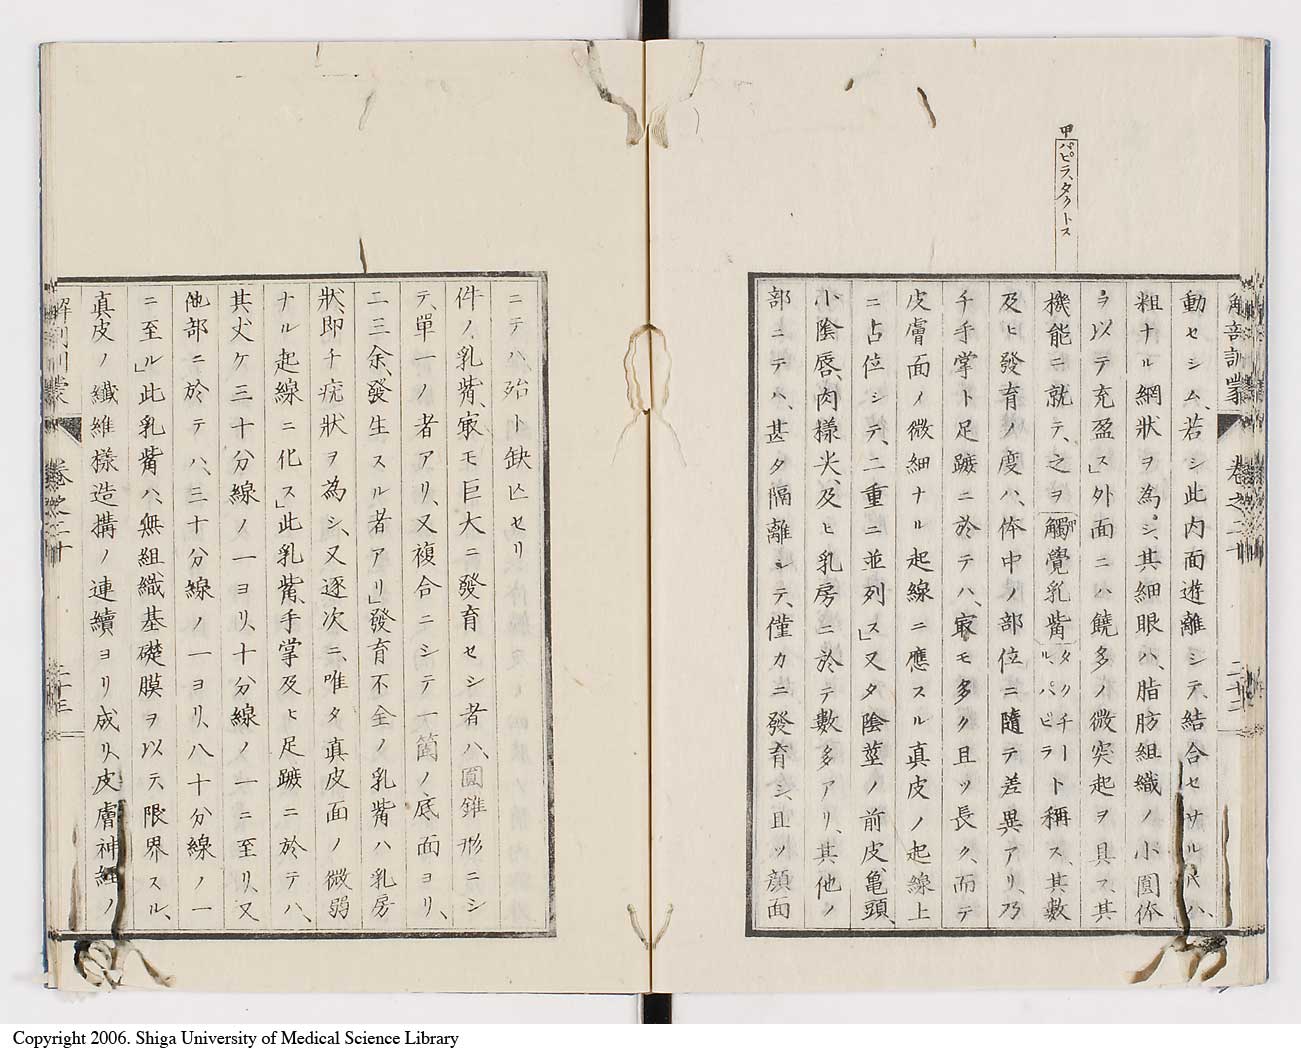 甲パピラ、タクトス
解剖訓蒙
卷之二十
二十二
動セシム、若シ此内面遊離シテ、結合セサル𪜈ハ、
粗ナル網狀ヲ為シ、其細眼ハ、脂肪組織ノ小圓体
ヲ以テ充盈ス」外面ニハ饒多ノ微突起ヲ具フ、其
機能ニ就テ、之ヲ觸覺乳觜タクチールパピラート稱ス、其數
及ヒ發育ノ度ハ、体中ノ部位ニ隨テ差異アリ、乃
チ手掌ト足蹠ニ於テハ、㝡モ多ク且ツ長ク、而テ
皮膚面ノ微細ナル起線ニ應スル真皮ノ起線上
ニ占位シテ、二重ニ並列ス」又タ陰莖ノ前皮、龜頭、
小陰唇、肉様尖、及ヒ乳房ニ於テ數多アリ、其他ノ
部ニテハ、甚タ隔離シテ、僅カニ發育シ、且ツ顔面
ニテハ、殆ト缺亡セリ
件ノ乳觜、㝡モ巨大ニ發育セシ者ハ、圓錐形ニシ
テ、單一ノ者アリ、又複合ニシテ一箇ノ底面ヨリ、
二三余、發生スル者アリ」發育不全ノ乳觜ハ乳房
狀、即チ疣狀ヲ為シ、又逐次ニ、唯タ真皮面ノ微弱
ナル起線ニ化ス」此乳觜、手掌及ヒ足蹠ニ於テハ、
其丈ケ三十分線ノ一ヨリ、十分線ノ一ニ至リ、又
他部ニ於テハ、三十分線ノ一ヨリ、八十分線ノ一
ニ至ル」此乳觜ハ、無組織基礎膜ヲ以テ限界スル、
真皮ノ纖維様造搆ノ連續ヨリ成リ、皮膚神經ノ
解剖訓蒙
卷之二十
Copyright 2006. Shiga University of Medical Science Library